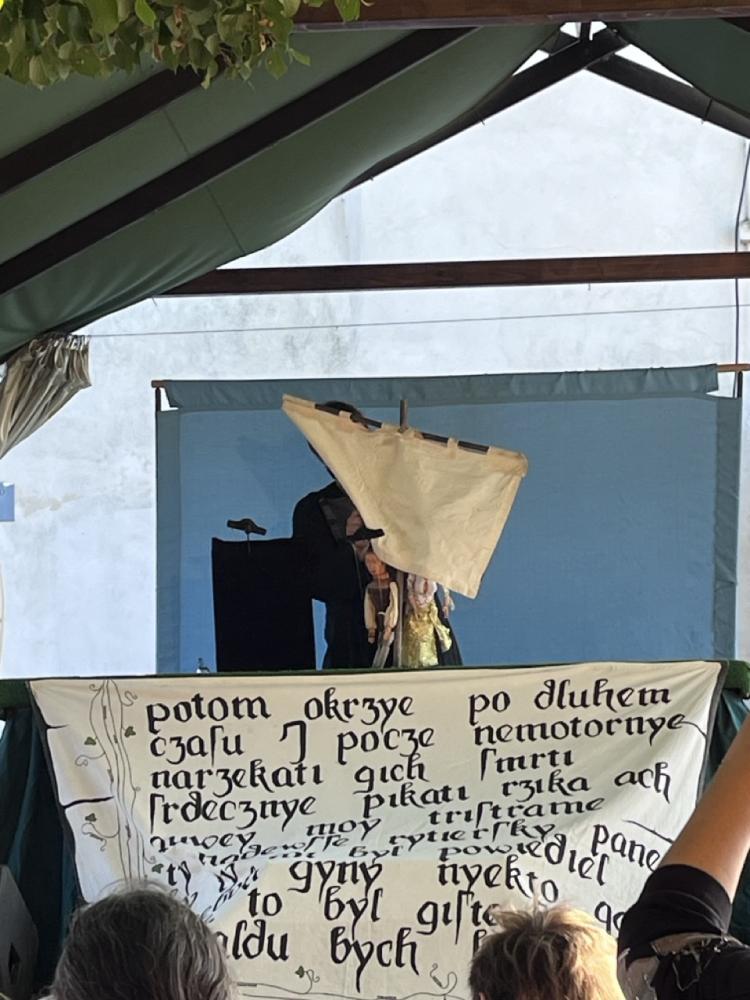 potom okrzye po dluhem
czaſu J pocze nemotornye
narzekatı gich ſmrtı
ſrdecznye pikatı rzıka ach
moy triſtrame
rytierſky pane
byl powiediel
gyny nyekto
to byl giſte
bych